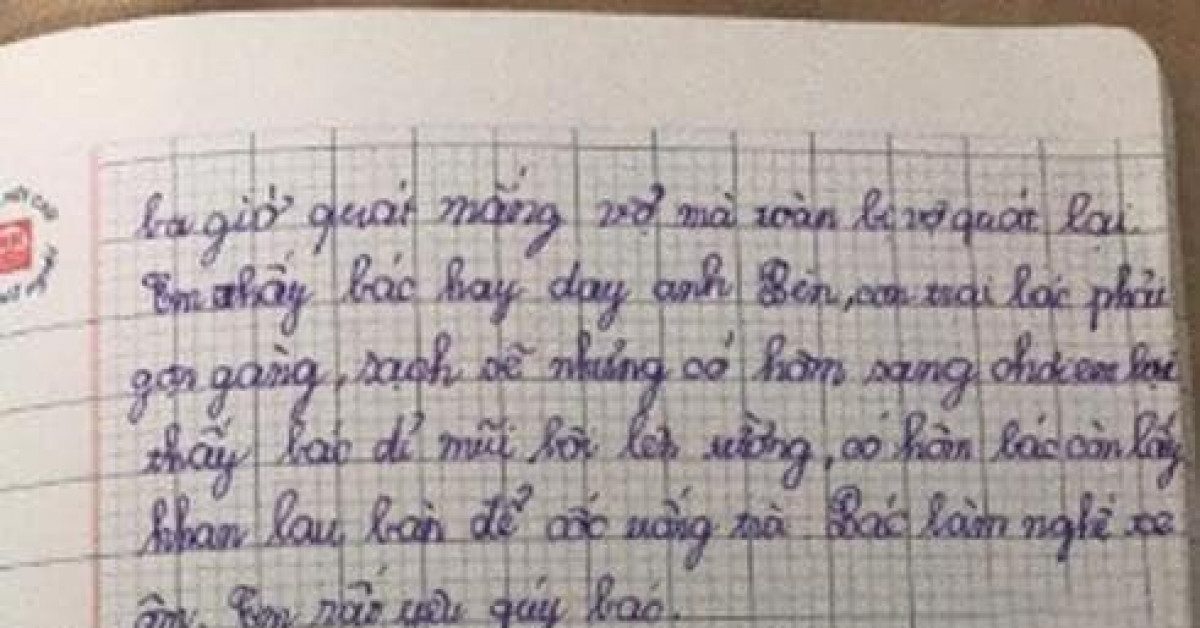 ba giờ quát mắng vợ mà toàn bị vợ quát lại.
Em thấy bác hay dạy anh Bin, con trai bác phải
gọn gàng, sạch sẽ nhưng có hôm sang chơi em lại
thấy bác dí mũi lên tường, có hôm bác còn lấy
khăn lau bàn để cốc uống trà Bác làm nghề xe
ôm. Em rất yêu quý bác.